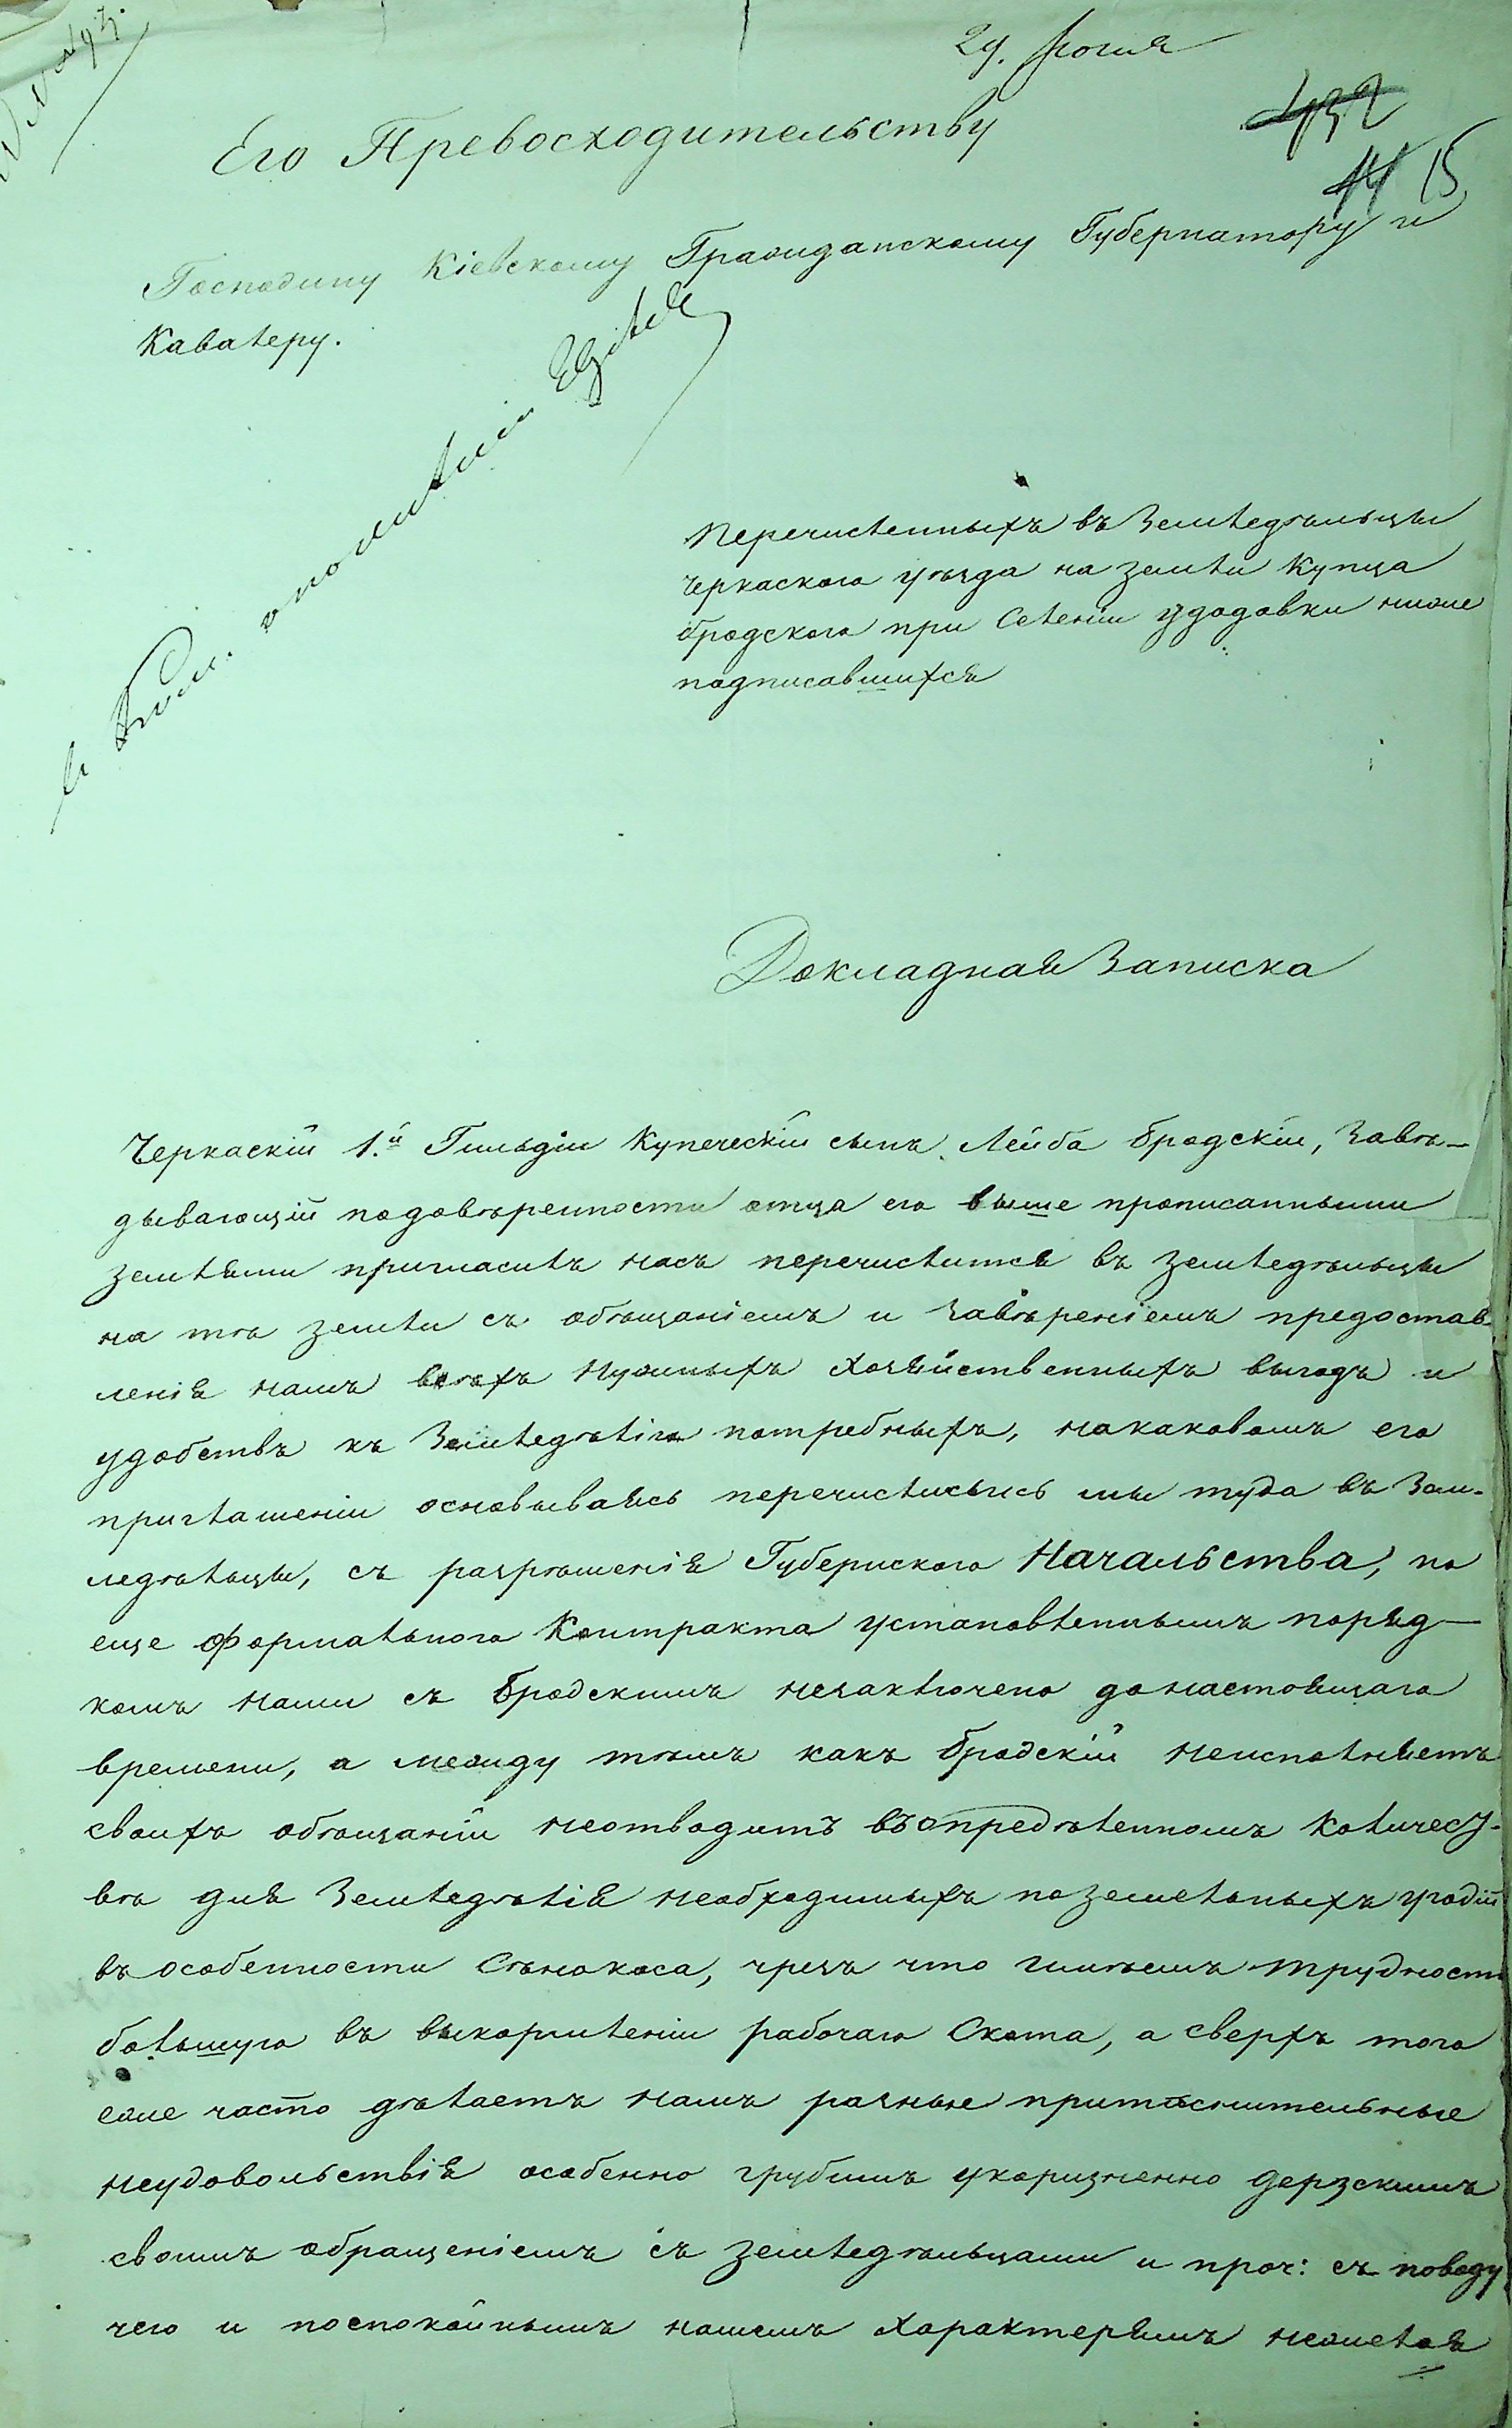 29. Іюля
432
14 15
Его Превосходительству
Господину Кіевскому Гражданскому Губернатору и
Кавалеру.
Перечисленныхъ въ Земледѣльцы
Черкаского уѣзда на земли Купца
бродского при Селеніи Удодовки ниже
подписавшихся
Докладная Записка
Черкаскій 1.й Гильдіи Купеческій сынъ Лейба бродскій, Завѣ-
дывающій подовѣренности отца его выше прописанными
землями пригласилъ насъ перечислится въ земледѣльцы
на тѣ земли съ обѣщаніемъ и завѣреніемъ предостав-
ленія намъ всѣхъ нужныхъ хозяйственныхъ выгодъ и
удобствъ къ Земледѣлію потребныхъ, накаковомъ его
приглашеніи основываясь перечислились мы туда въ Зем-
ледѣльцы, съ разрѣшенія Губернского Начальства, но
еще формального Контракта установленнымъ поряд-
комъ нами съ бродскимъ незаключено донастоящаго
времени, а между тѣмъ какъ бродскій неисполняетъ
своихъ обѣщаній неотводитъ въопредѣленномъ количест-
вѣ для Земледѣлія необходимыхъ поземельныхъ угодій
въ особенности Сѣнокоса, чрезъ что имѣемъ трудность
большую въ выкормленіи рабочаго Скота, а сверхъ того
еще часто дѣлаетъ намъ разные притѣснительные
неудовольствія особенно грубымъ укоризненно дерзскимъ
своимъ обращеніемъ съ земледѣльцами и проч: съ поводу
чего и поспокойнымъ нашимъ характерямъ нежелая